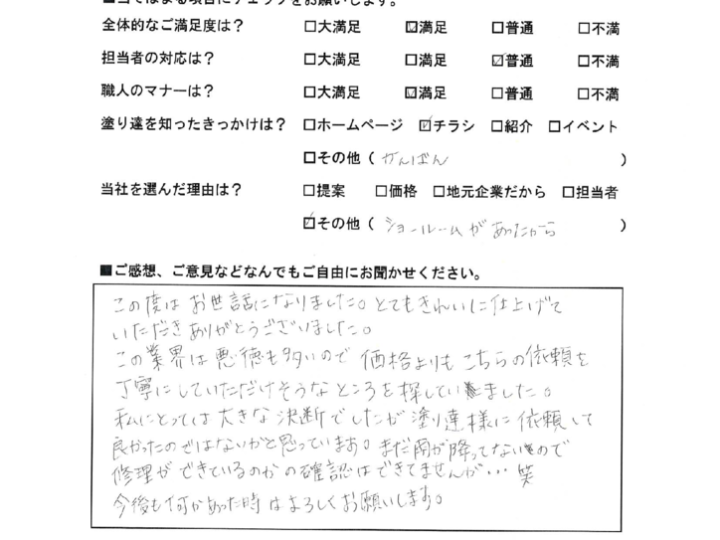 ■当てはまる項目にチェックをお願いします。
全体的なご満足度は？ □大満足 ☑満足 □普通 □不満
担当者の対応は？ □大満足 □満足 ☑普通 □不満
職人のマナーは？ □大満足 ☑満足 □普通 □不満
塗り達を知ったきっかけは？ □ホームページ ☑チラシ □紹介 □イベント
□その他（ かんばん ）
当社を選んだ理由は？ □提案 □価格 □地元企業だから □担当者
☑その他（ ショールームがあったから ）
■ご感想、ご意見などなんでもご自由にお聞かせください。
この度はお世話になりました。とてもきれいに仕上げて
いただきありがとうございました。
この業界は悪徳も多いので価格よりもこちらの依頼を
丁寧にしていただけそうなところを探していました。
私にとっては大きな決断でしたが塗り達様に依頼して
良かったのではないかと思っています。まだ雨が降ってないもので
修理ができているのかの確認はできてませんが…笑
今後も何かあった時はよろしくお願いします。